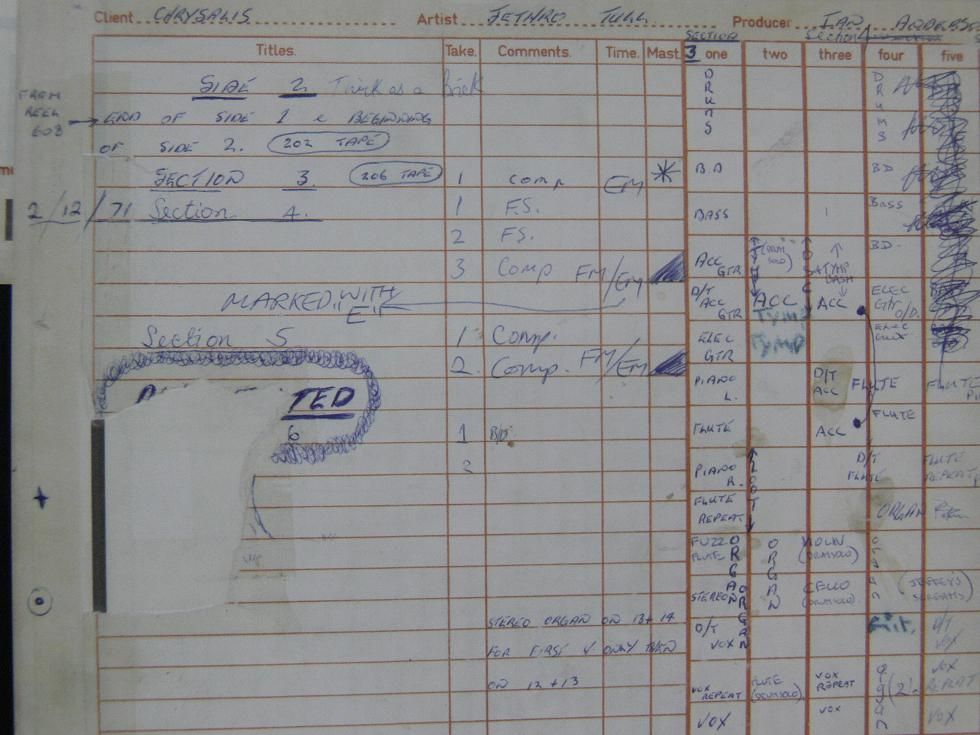 Client CHRYSALIS Artist JETHRO TULL Producer IAN ANDERSO
SECTION Section
Titles. Take. Comments. Time. Mast. 3 one two three four five
SIDE 2 Thick as a Brick DRUMS DRUMS
FROM REEL 608 END OF SIDE 1 e BEGINNING
OF SIDE 2. (202 TAPE)
SECTION 3. (206 TAPE) 1 Comp EM * B.D BD
2/12/71 Section 4. 1 F.S. BASS 1 Bass
2 F.S. BD.
3 Comp FM/EM ACC GTR (DRUM SOLO)
MARKED WITH "E" D/T ACC GTR ACC TYMP ACC ELEC GTR O/D.
Section 5 1 Comp. ELEC GTR TYMP ELEC
2. Comp. FM/EM PIANO L. D/T ACC FLUTE FLUTE
TED
6 1 B/D. FLUTE ACC FLUTE
2 PIANO R. D/T FLUTE FLUTE REPEAT
FLUTE REPEAT ORGAN
FUZZ FLUTE ORGAN ORGAN VIOLIN (DRUM SOLO)
STEREO ORGAN CELLO (DRUM SOLO) (JEFFREYS SCREAMS)
STEREO ORGAN ON 13+14 D/T VOX D/T VOX
FOR FIRST 4 ONLY THEN
ON 12+13 VOX REPEAT FLUTE (DRUM SOLO) VOX REPEAT VOX REPEAT
VOX VOX VOX